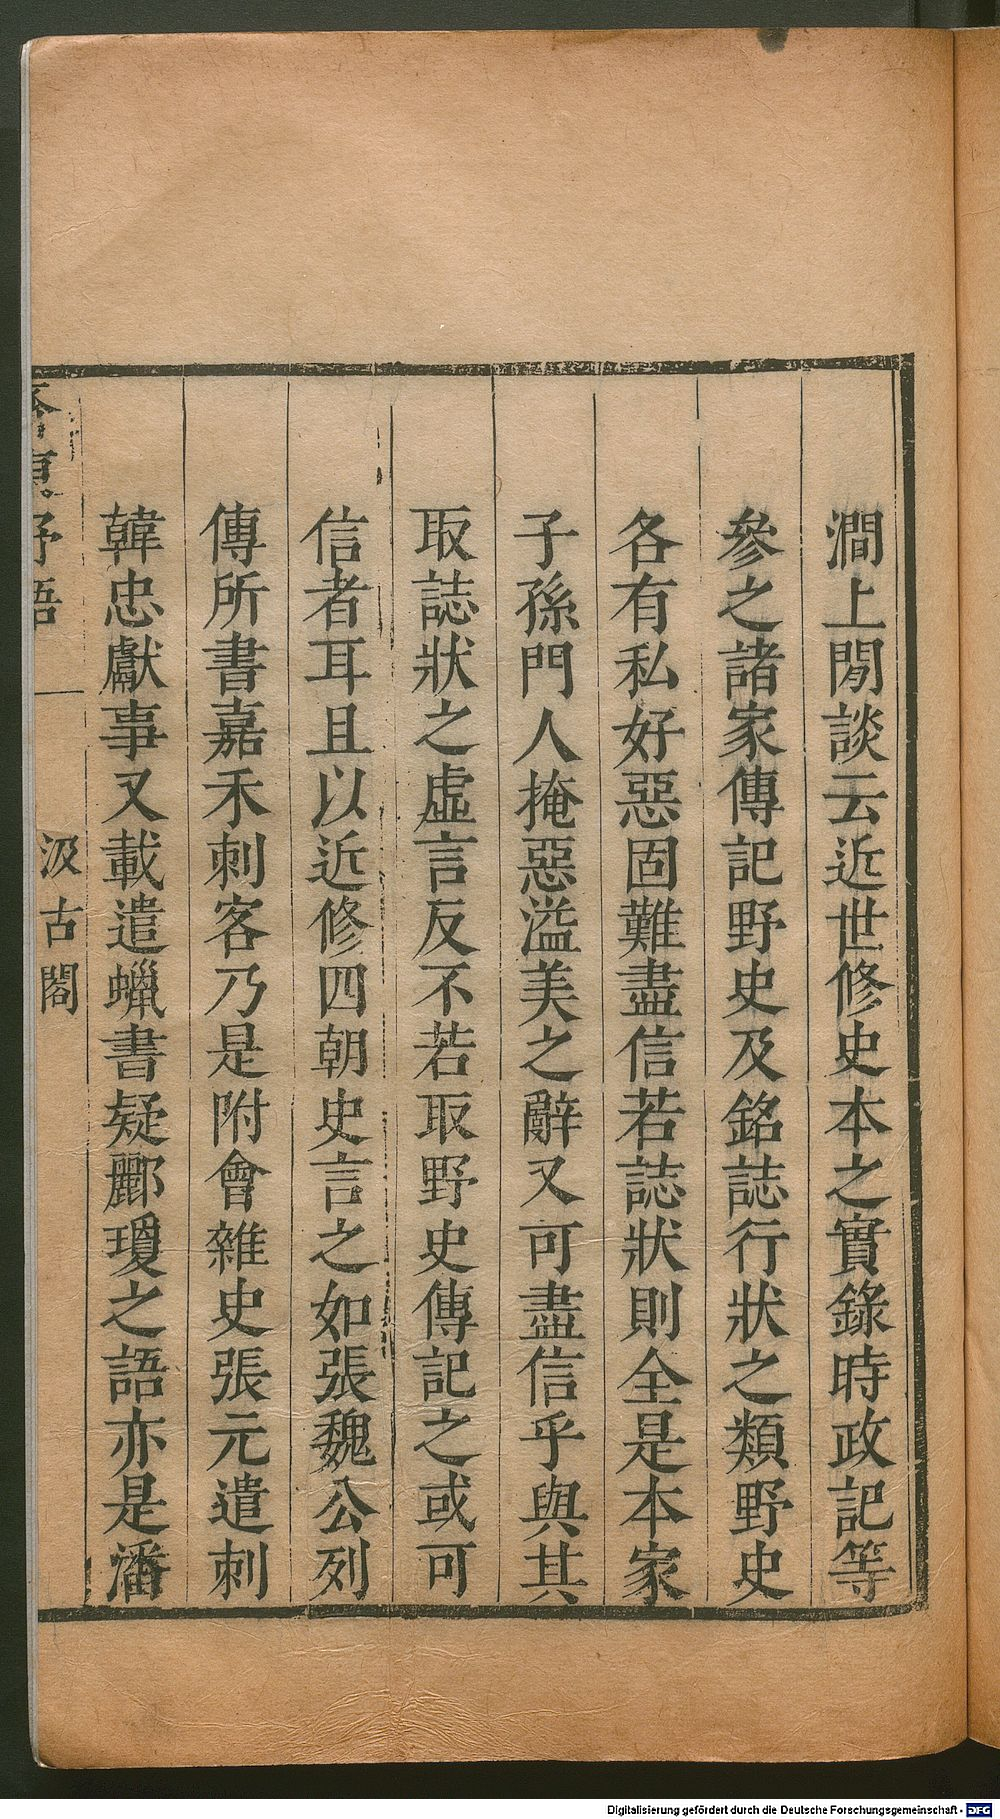 澗上閒談云近世修史本之實錄時政記等
參之諸家傳記野史及銘誌行狀之類野史
各有私好惡固難盡信若誌狀則全是本家
子孫門人掩惡溢美之辭又可盡信乎與其
取誌狀之虛言反不若取野史傳記之或可
信者耳且以近修四朝史言之如張魏公列
傳所書嘉禾刺客乃是附會雜史張元遣刺
韓忠獻事又載遣蠟書疑酈瓊之語亦是潘
齊東野語 一 汲古閣
Digitalisierung gefördert durch die Deutsche Forschungsgemeinschaft - DFG